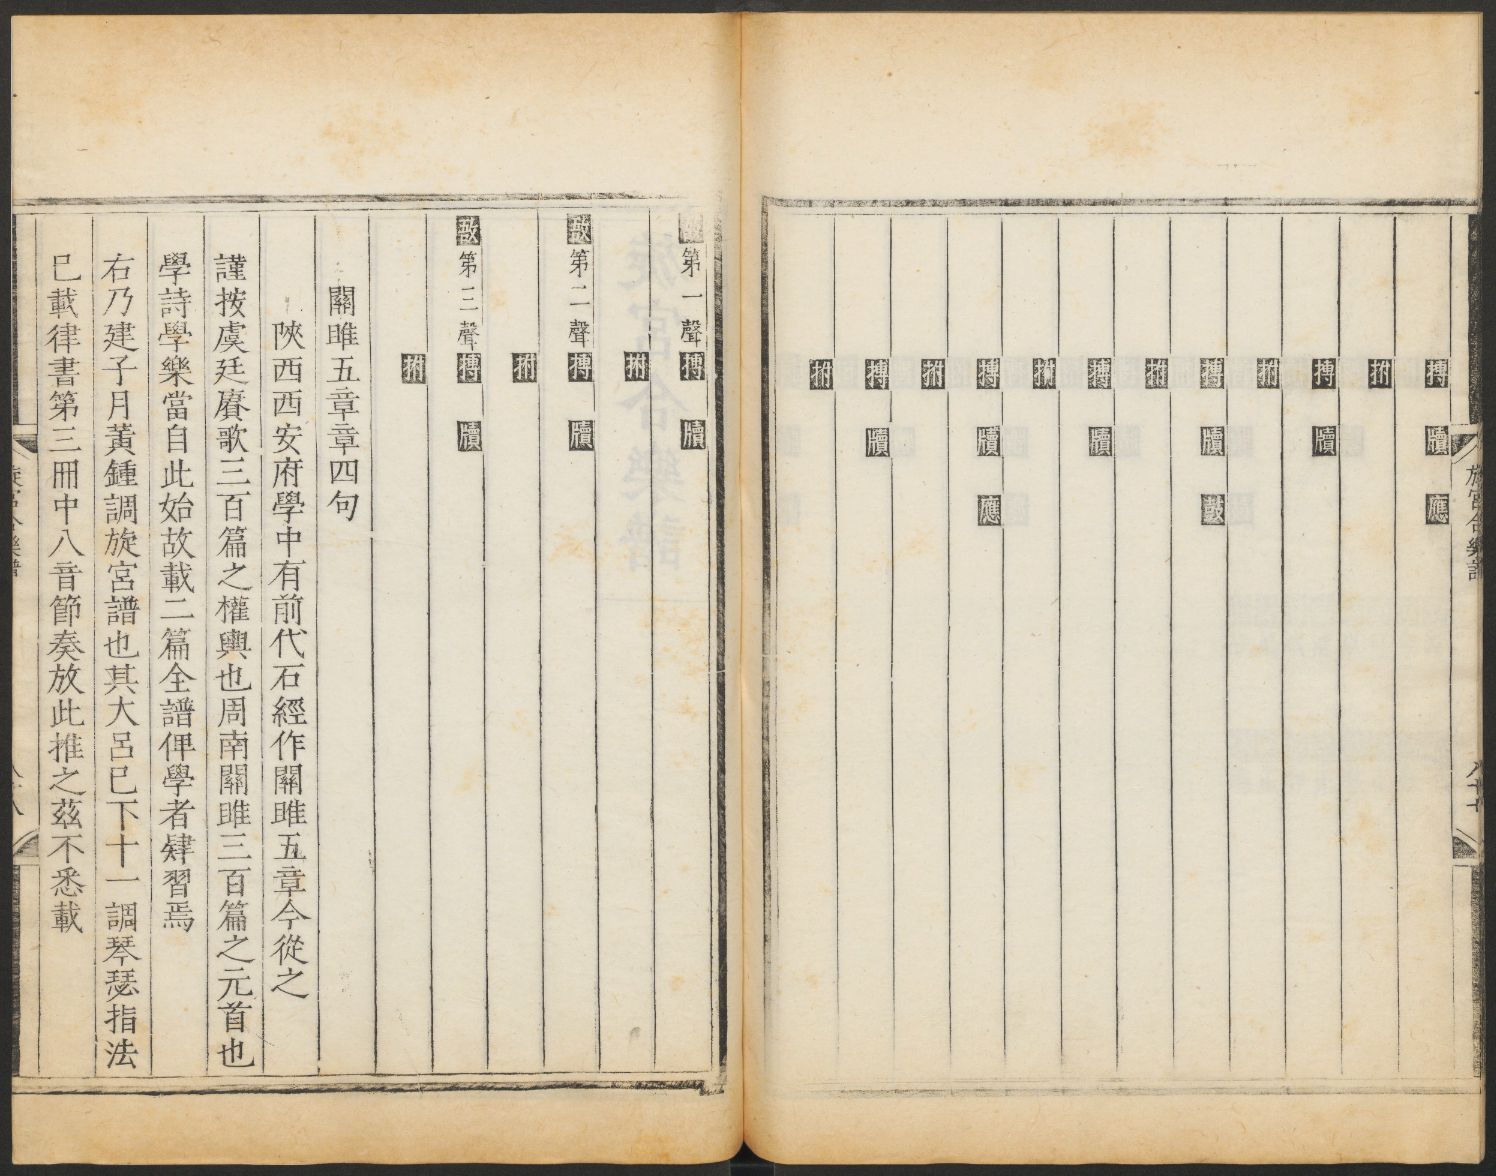 搏 牘 應
拊
搏 牘
拊
搏 牘 鼓
拊
搏 牘
拊
搏 牘 應
拊
搏 牘
拊
旋宮合樂譜 八十七
第一聲 搏 牘
拊
敔 第二聲 搏 牘
拊
敔 第三聲 搏 牘
拊
關雎五章章四句
陝西西安府學中有前代石經作關雎五章今從之
謹按虞廷賡歌三百篇之權輿也周南關雎三百篇之元首也
學詩學樂當自此始故載二篇全譜俾學者肄習焉
右乃建子月黃鍾調旋宮譜也其大呂已下十一調琴瑟指法
已載律書第三冊中八音節奏放此推之茲不悉載